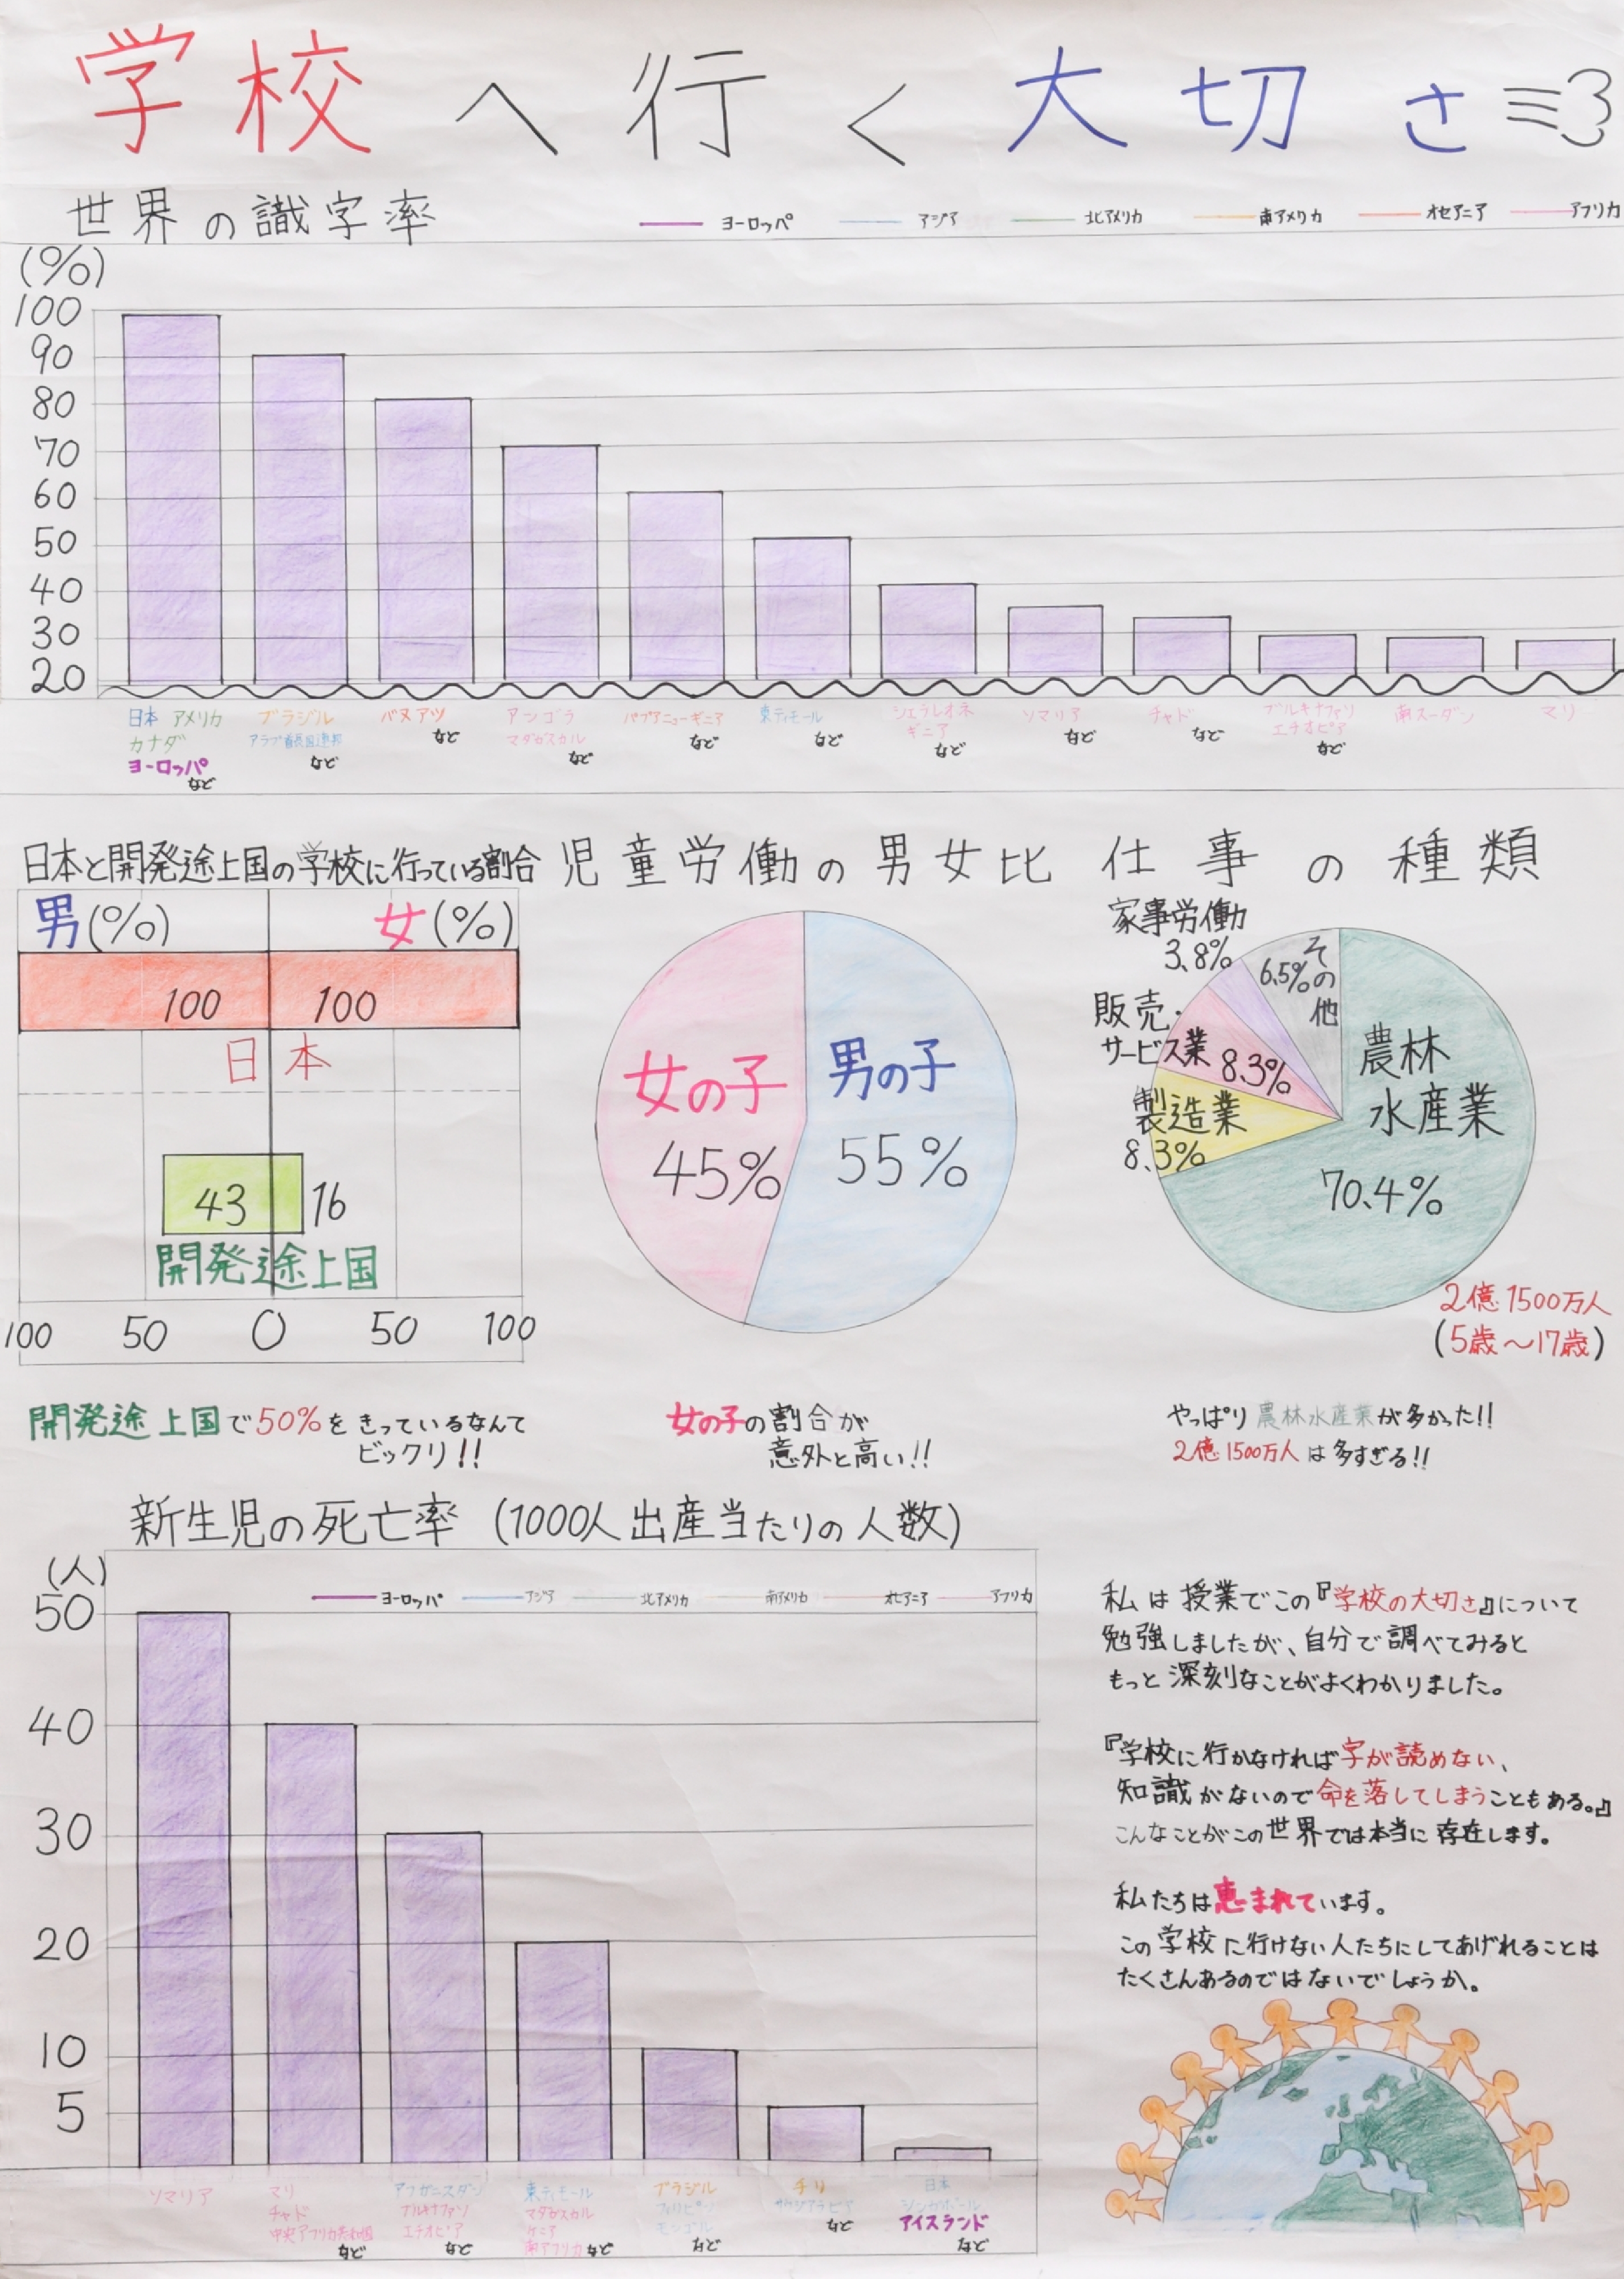 学校へ行く大切さ
世界の識字率
ヨーロッパ アジア 北アメリカ 南アメリカ オセアニア アフリカ
(%)
100
90
80
70
60
50
40
30
20
日本 アメリカ
カナダ
ヨーロッパ
など
ブラジル
アラブ首長国連邦
など
バヌアツ
など
アンゴラ
マダガスカル
など
パプアニューギニア
など
東ティモール
など
シエラレオネ
ギニア
など
ソマリア
など
チャド
など
ブルキナファソ
エチオピア
など
南スーダン
マリ
日本と開発途上国の学校に行っている割合
男(%) 女(%)
100 100
日本
43 16
開発途上国
100 50 0 50 100
開発途上国で50%をきっているなんて
ビックリ!!
児童労働の男女比
女の子
45%
男の子
55%
女の子の割合が
意外と高い!!
仕事の種類
家事労働
3.8%
その他
6.5%
販売・
サービス業
8.3%
製造業
8.3%
農林
水産業
70.4%
2億1500万人
(5歳〜17歳)
やっぱり農林水産業が多かった!!
2億1500万人は多すぎる!!
新生児の死亡率(1000人出産当たりの人数)
(人)
ヨーロッパ アジア 北アメリカ 南アメリカ オセアニア アフリカ
50
40
30
20
10
5
ソマリア
マリ
チャド
中央アフリカ共和国
など
アフガニスタン
ブルキナファソ
エチオピア
など
東ティモール
マダガスカル
ケニア
南アフリカなど
ブラジル
フィリピン
モンゴル
など
チリ
サウジアラビア
など
日本
シンガポール
アイスランド
など
私は授業でこの『学校の大切さ』について
勉強しましたが、自分で調べてみると
もっと深刻なことがよくわかりました。
『学校に行かなければ字が読めない、
知識がないので命を落してしまうこともある。』
こんなことがこの世界では本当に存在します。
私たちは恵まれています。
この学校に行けない人たちにしてあげれることは
たくさんあるのではないでしょうか。